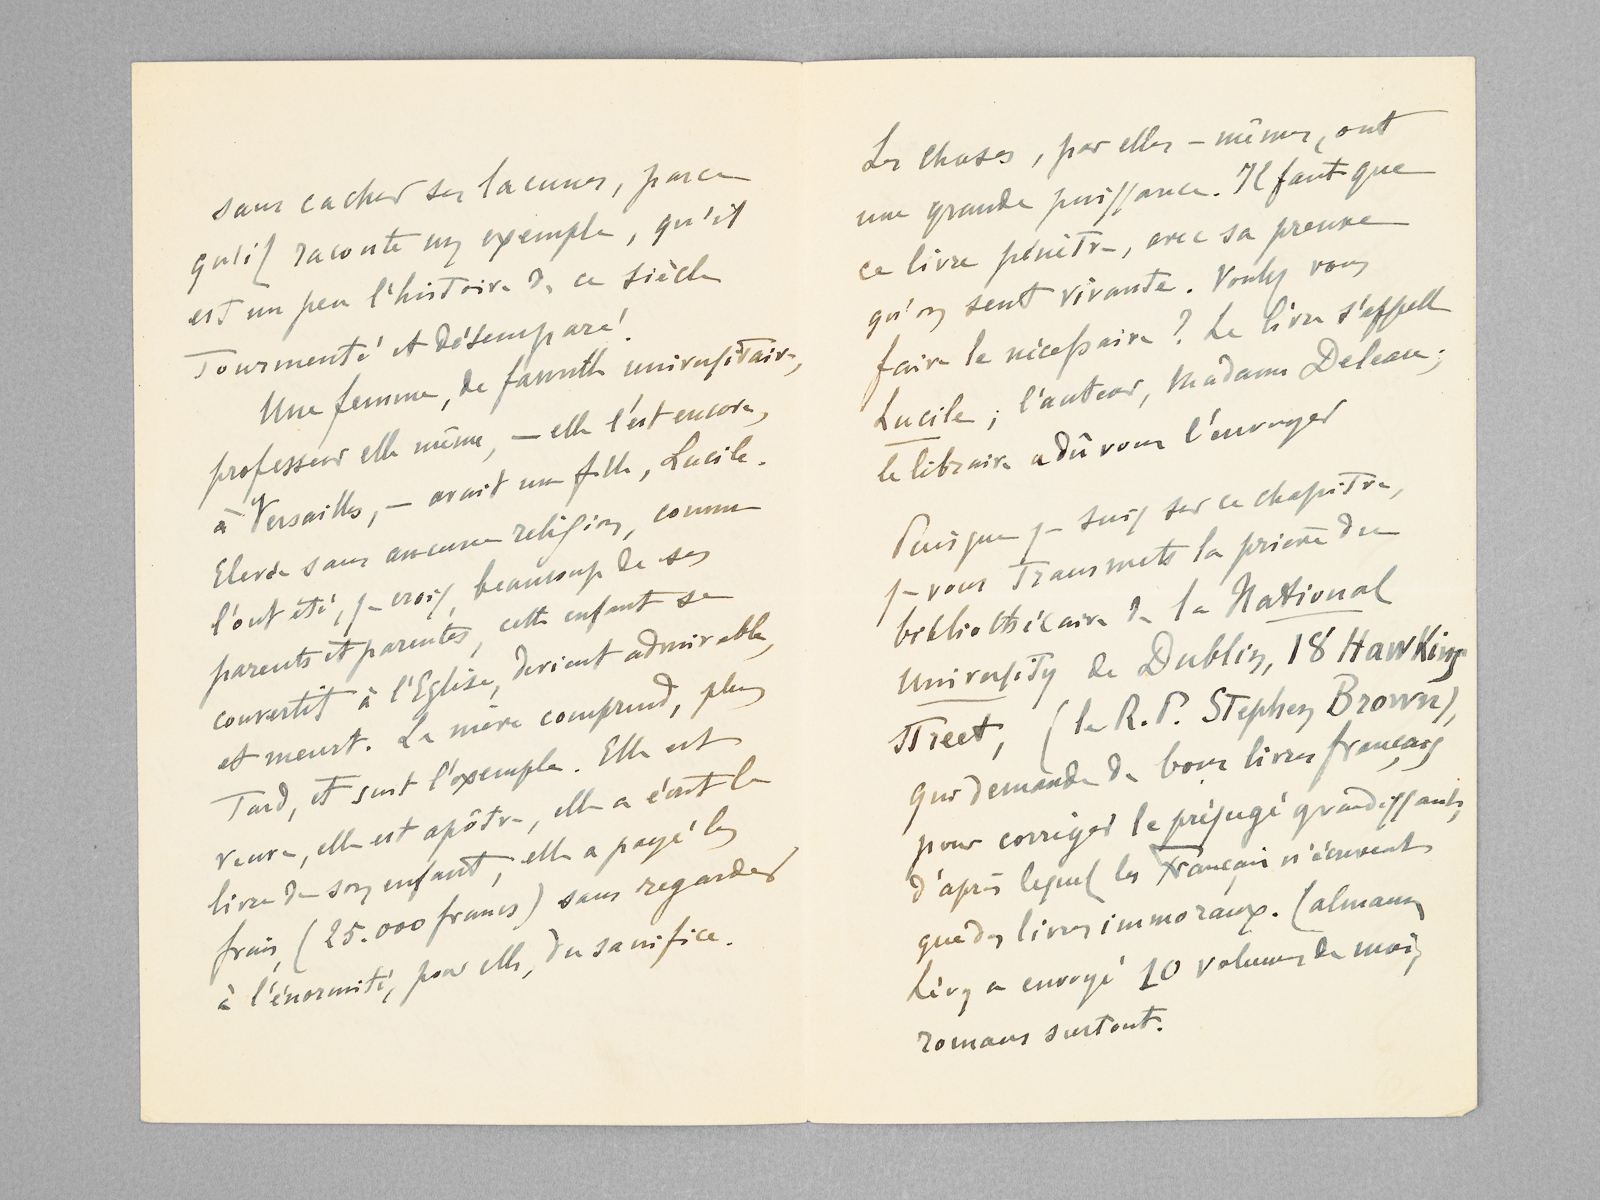 sans cacher ses lacunes, parce
qu'il raconte un exemple, qu'il
est un peu l'histoire de ce siècle
tourmenté et désemparé!
Une femme, de famille universitaire,
professeur elle même, — elle l'est encore,
à Versailles, — avait une fille, Lucile.
Elevée sans aucune religion, comme
l'ont été, je crois, beaucoup de ses
parents et parentes, cette enfant se
convertit à l'Eglise, devient admirable,
et meurt. La mère comprend, plus
tard, et suit l'exemple. Elle est
veuve, elle est apôtre, elle a écrit le
livre de son enfant, elle a payé les
frais, (25.000 francs) sans regarder
à l'énormité, pour elle, du sacrifice.
Les choses, par elles-mêmes, ont
une grande puissance. Il faut que
ce livre pénètre, avec sa preuve
qu'on sent vivante. Voulez vous
faire le nécessaire? Le livre s'appelle
Lucile; l'auteur, Madame Deleau;
le libraire a dû vous l'envoyer
Puisque je suis sur ce chapitre,
je vous transmets la prière du
bibliothécaire de la National
University de Dublin, 18 Hawking
street, (le R.P. Stephen Brown),
qui demande de bons livres français
pour corriger le préjugé grandissant,
d'après lequel les Français n'écrivent
que des livres immoraux. (Calmann
Lévy a envoyé 10 volumes de moi,
romans surtout.